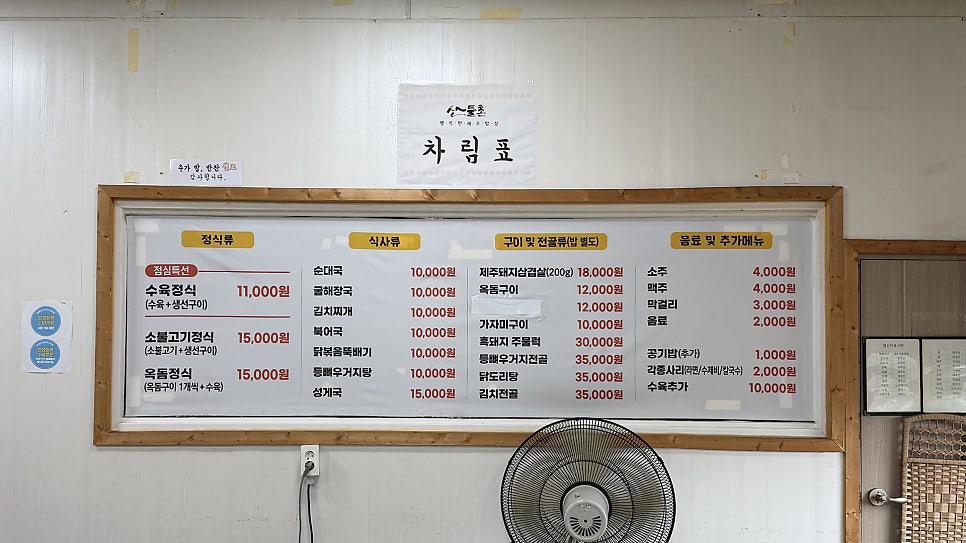 산들촌
행복한 제주밥상
차림표
추가 밥, 반찬 셀프
감사합니다.
정식류
점심특선
수육정식 11,000원
(수육+생선구이)
소불고기정식 15,000원
(소불고기+생선구이)
옥돔정식 15,000원
(옥돔구이 1개씩+수육)
식사류
순대국 10,000원
굴해장국 10,000원
김치찌개 10,000원
북어국 10,000원
닭볶음뚝배기 10,000원
등뼈우거지탕 10,000원
성게국 15,000원
구이 및 전골류(밥 별도)
제주돼지삼겹살(200g) 18,000원
옥돔구이 12,000원
12,000원
가자미구이 10,000원
흑돼지 주물럭 30,000원
등뼈우거지전골 35,000원
닭도리탕 35,000원
김치전골 35,000원
음료 및 추가메뉴
소주 4,000원
맥주 4,000원
막걸리 3,000원
음료 2,000원
공기밥(추가) 1,000원
각종사리(라면/수제비/칼국수) 2,000원
수육추가 10,000원